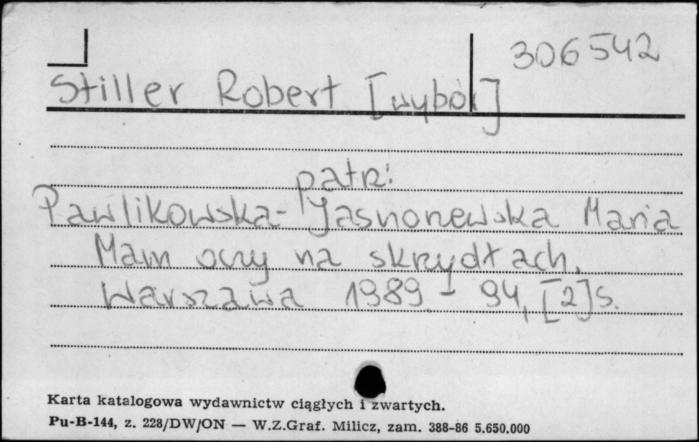 306542
Stiller Robert [wybór]
patrz:
Pawlikowska-Jasnorzewska Maria
Mam oczy na skrzydłach.
Warszawa 1989. - 94, [2]s.
Karta katalogowa wydawnictw ciągłych i zwartych.
Pu-B-144, z. 228/DW/ON — W.Z.Graf. Milicz, zam. 388-86 5.650.000